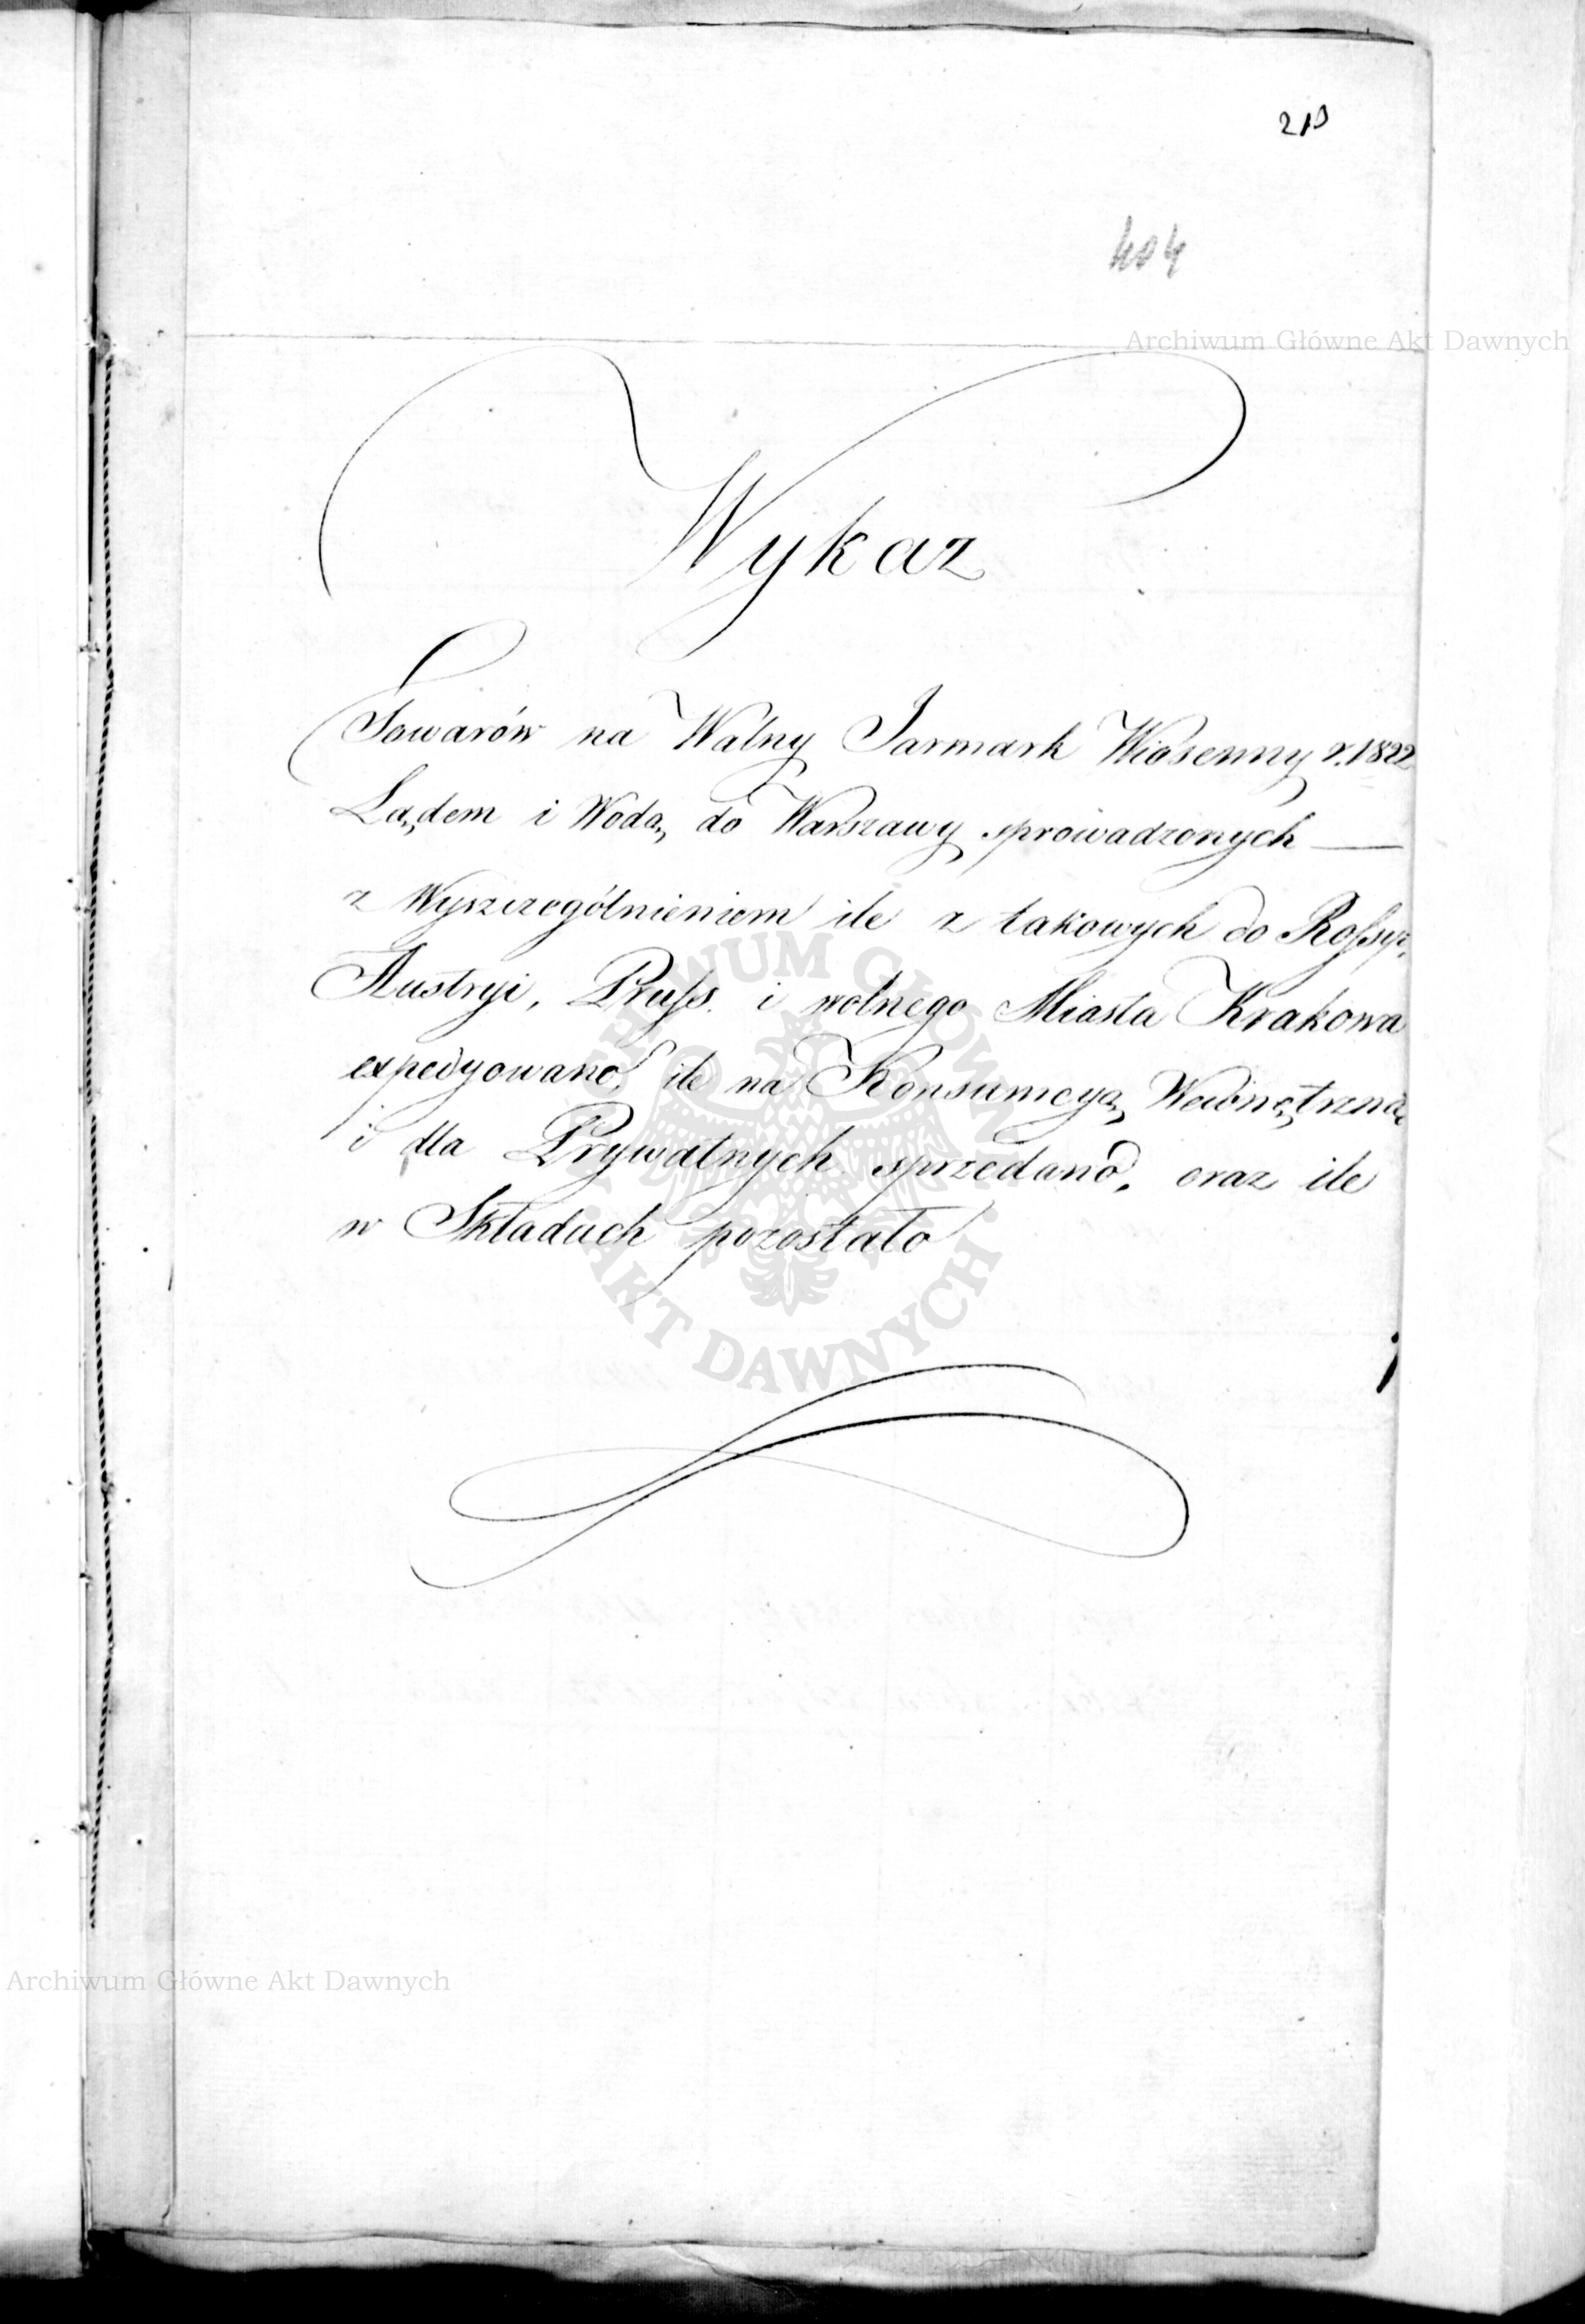 219
404
Archiwum Główne Akt Dawnych
Wykaz
Towarów na Walny Jarmark Wiosenny r. 1822
Lądem i Wodą do Warszawy sprowadzonych —
z Wyszczególnieniem ile z takowych do Rossyi,
Austryi, Pruss. i wolnego Miasta Krakowa
expedyowano, ile na Konsumcyą Wewnętrzną
i dla Prywatnych sprzedano, oraz ile
w Składach pozostało
ARCHIWUM GŁÓWNE
AKT DAWNYCH
Archiwum Główne Akt Dawnych